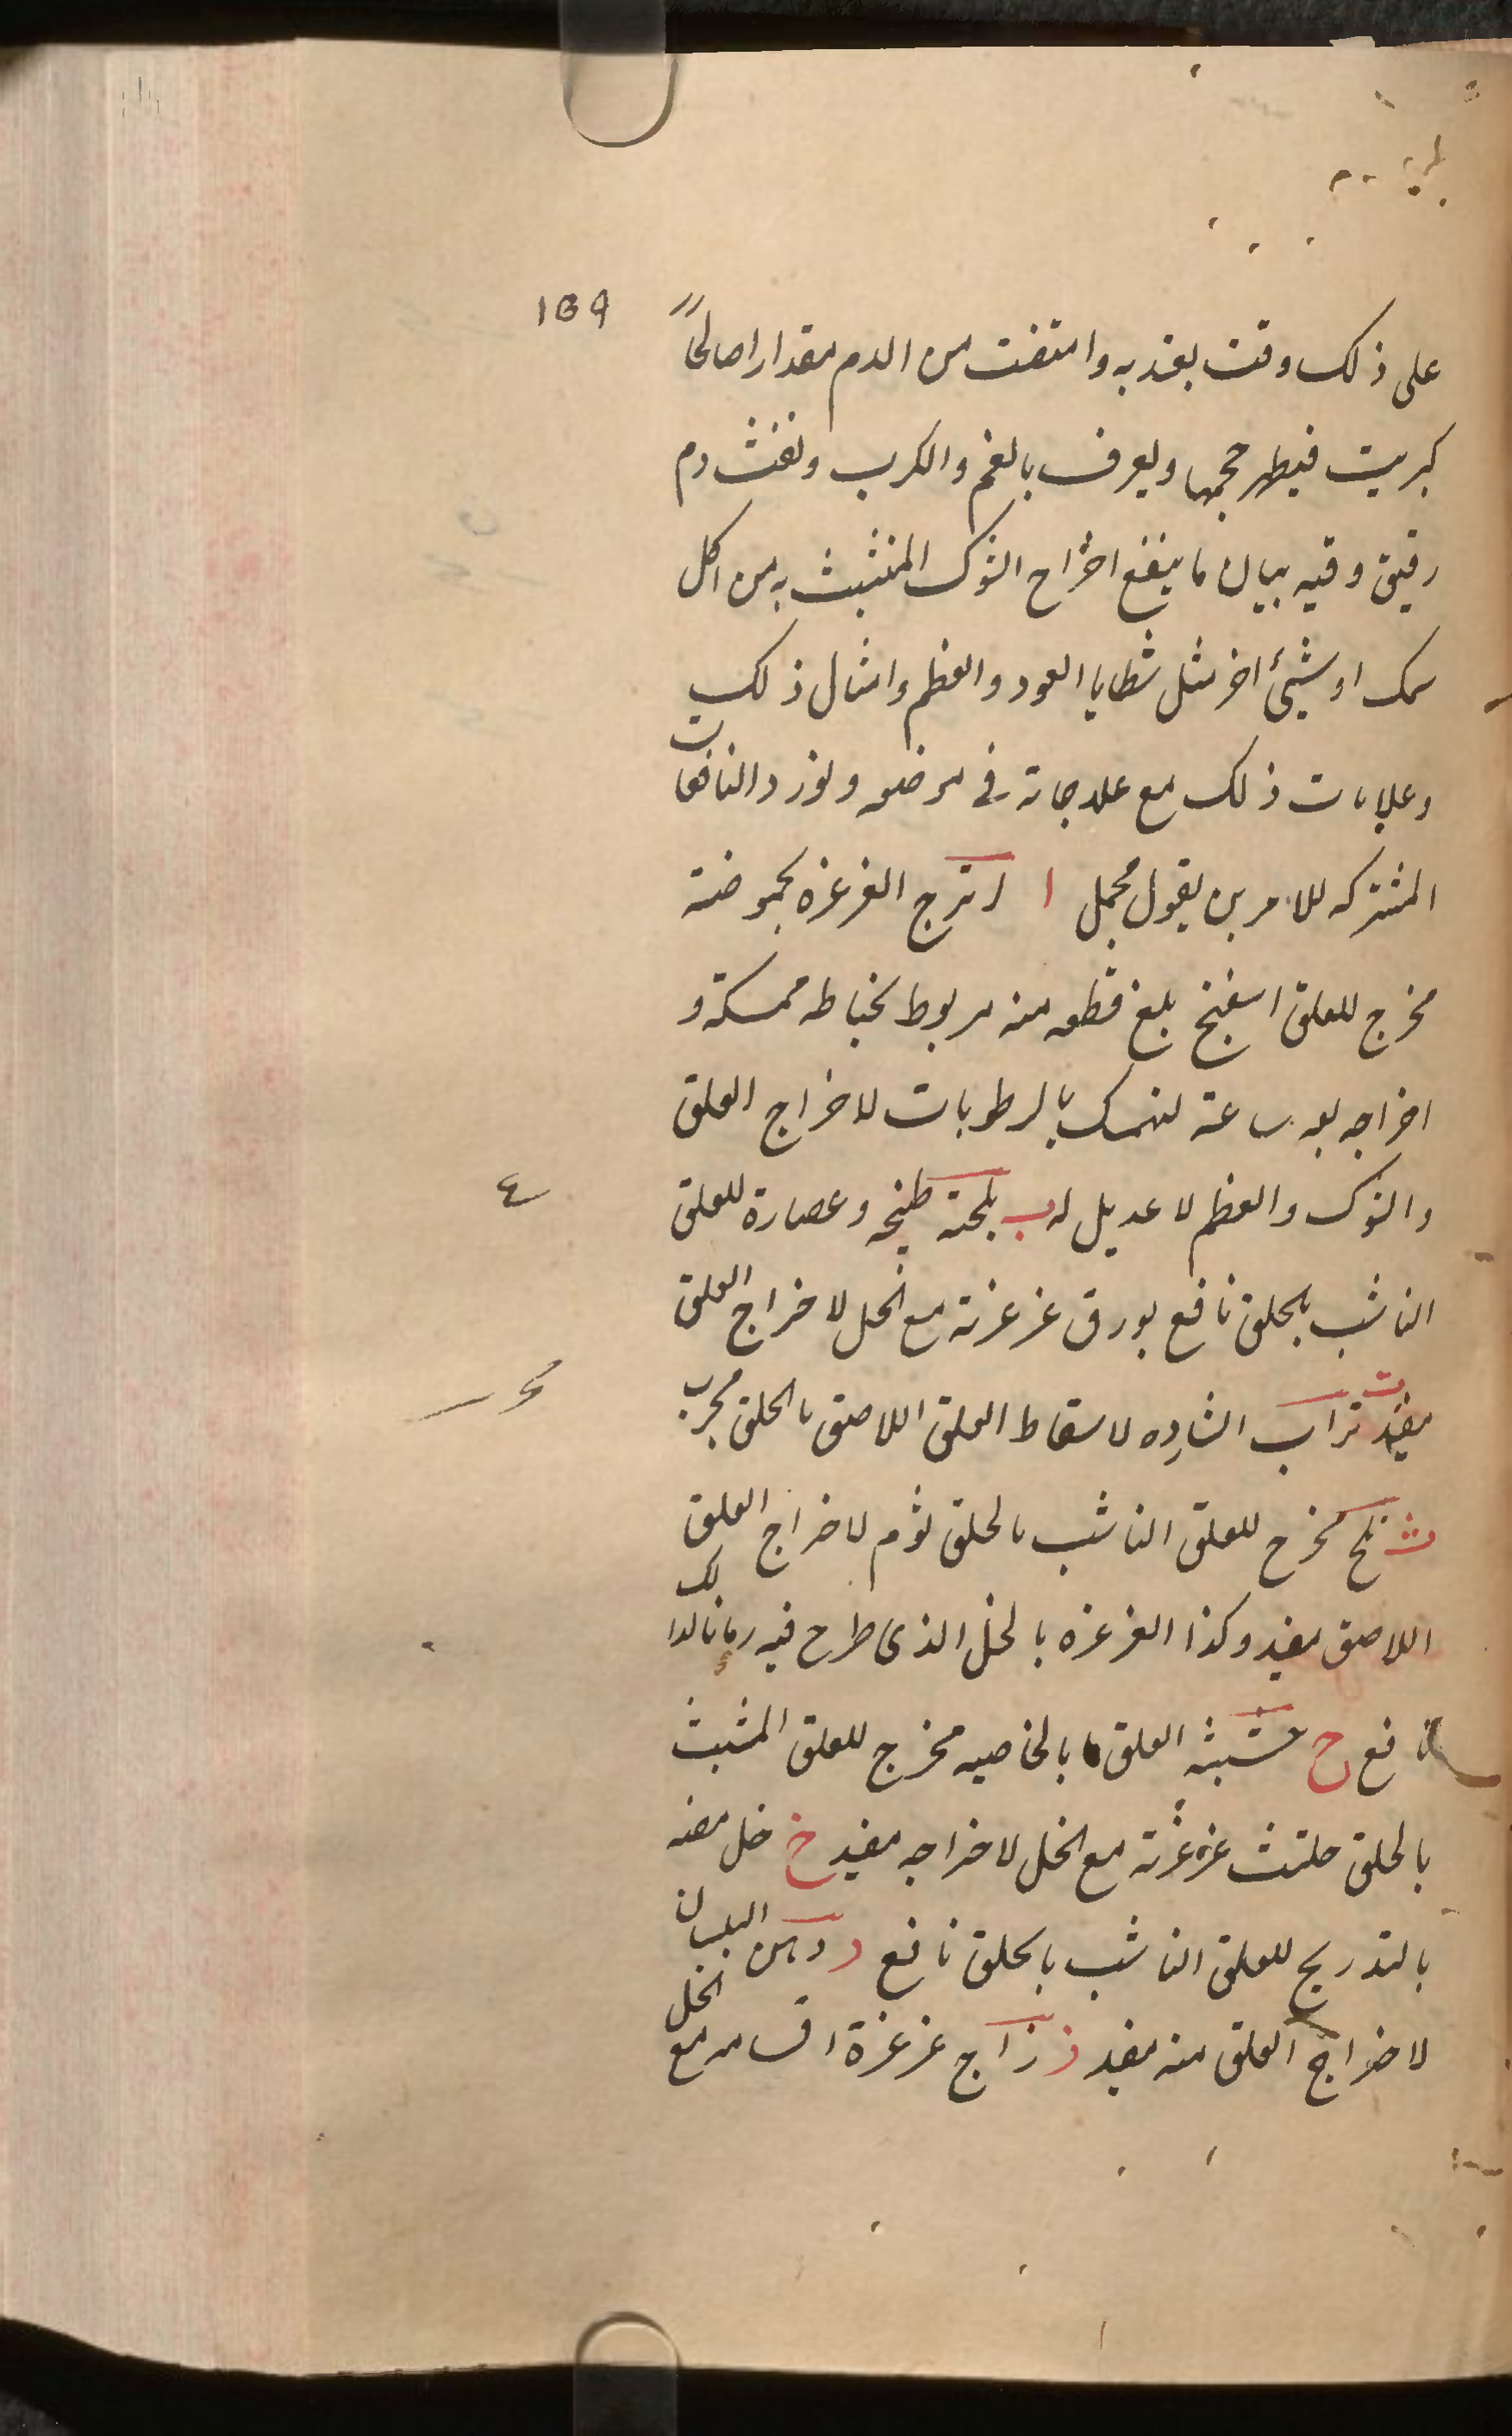 159
على ذلك وقت بعد به وامتفت من الدم مقدارا صالحاً
كبريت فيظهر حجمها ويعرف بالغم والكرب ونفث دم
رقيق وفيه بيان ما ينفع اخراج الشوك المنتشبث به من اكل
سمك او شيئ اخر مثل شظايا العود والعظم وامثال ذلك
وعلامات ذلك مع علاجاته فى موضعه ونورد النافعات
المشتركه للامرين بقول مجمل ا اترج الغرغره بحموضته
مخرج للعلق اسفنج بلع قطعه منه مربوط بخياطه ممسكة و
اخراجه بعد ساعة لتمسك بالرطوبات لاخراج العلق
والشوك والعظم لا عديل له ب طبخه وعصارة للعلق
الناشب بالحلق نافع بورق غرغرته مع الخل لاخراج العلق
مفيد ت تراب الشاده لاسقاط العلق اللاصق بالحلق مجرب
ث ثلج مخرج للعلق الناشب بالحلق ثوم لاخراج العلق
اللاصق مفيد وكذا الغرغره بالخل الذى طرح فيه زمانا لذلك
نافع ح حشيشة العلق بالخاصيه مخرج للعلق المتشبث
بالحلق حلتيث غرغرته مع الخل لاخراجه مفيد خ خل مضه
بالتدريج للعلق الناشب بالحلق نافع د دهن البلسان
لاخراج العلق منه مفيد ز زاج غرغرة اقسامه مع الخل